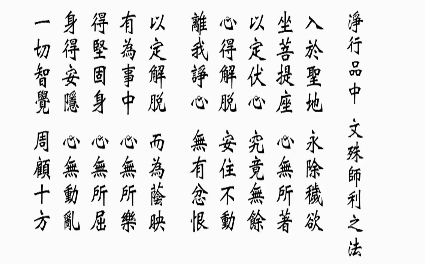 淨行品中 文殊師利之法
入於聖地 永除穢欲
坐菩提座 心無所著
以定伏心 究竟無餘
心得解脫 安住不動
離我諍心 無有忿恨
以定解脫 而為蔭映
有為事中 心無所樂
得堅固身 心無所屈
身得安隱 心無動亂
一切智覺 周顧十方